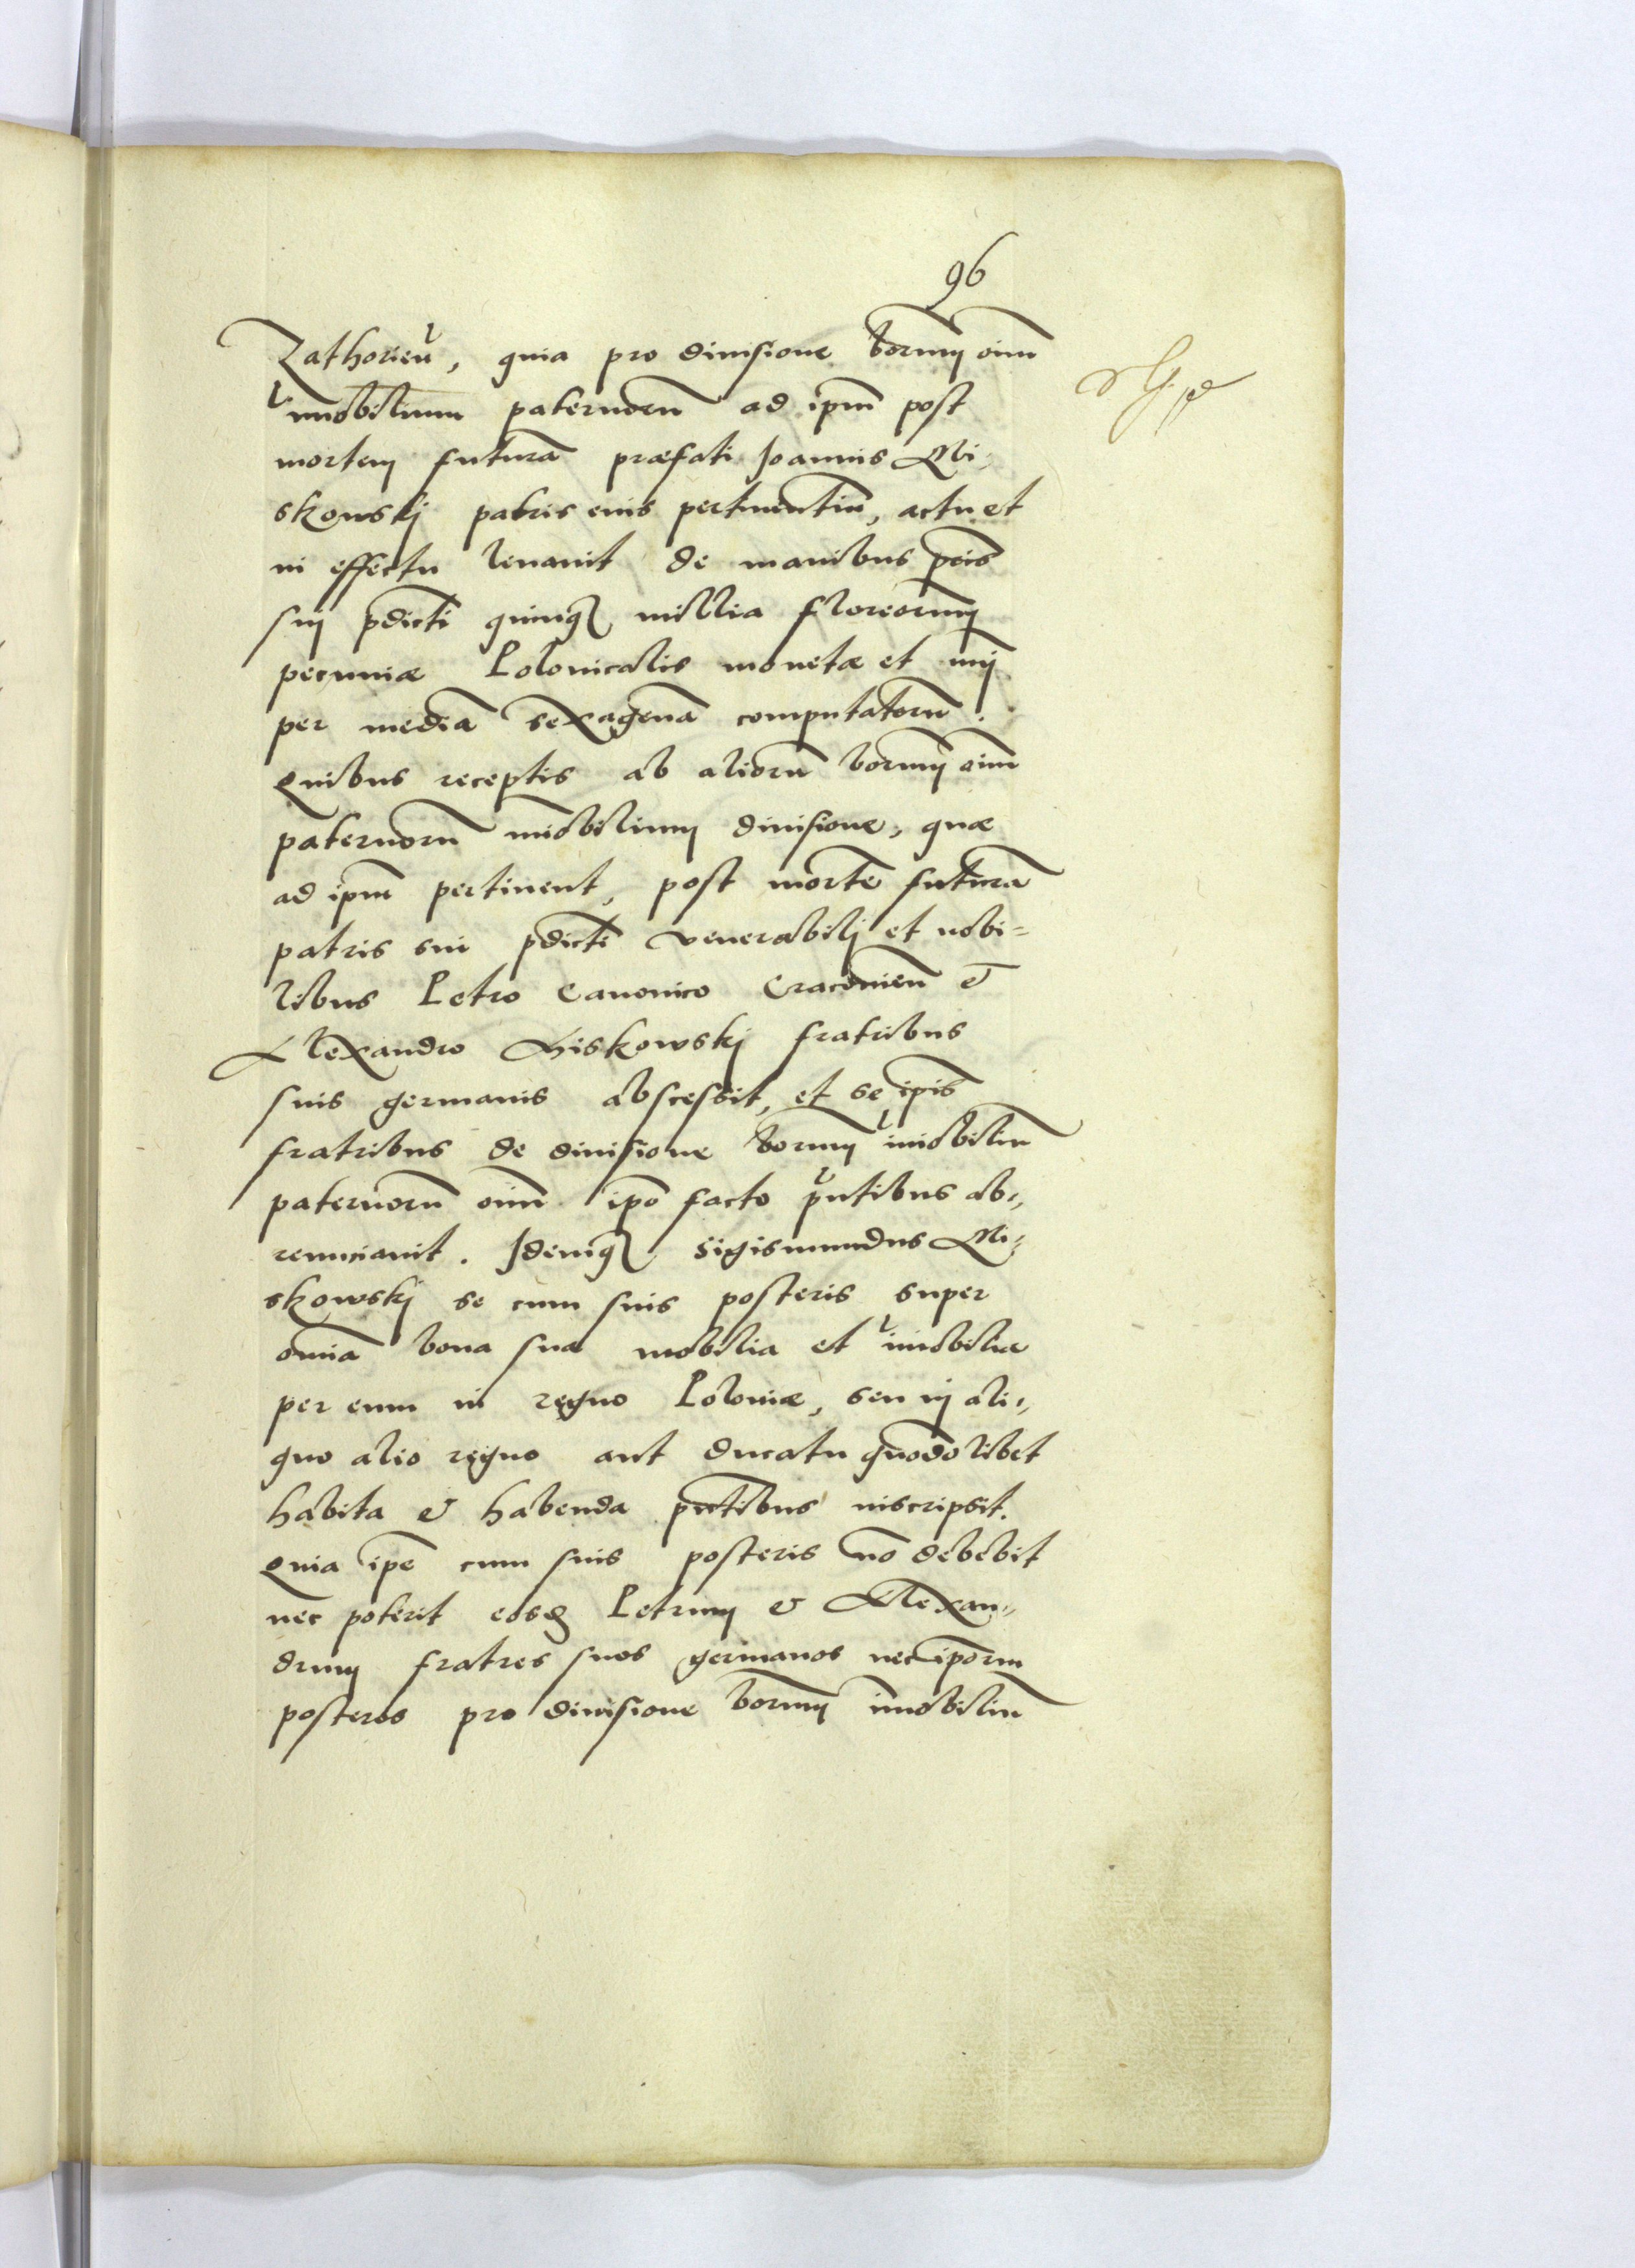 96
Zathorień, quia pro diuisione bonorum oīm
imobilium paternorū ad ipm̄ post
mortem futurā præfati Joannis Mi-
skowskj patris eius pertinentiū, actu et
in effectu leuauit de manibus pr̄is
suj p̄dicti quinq₃ millia floreorum
pecuniæ Polonicalis monetæ et nrj̄
per mediā sexagenā computatorū.
Quibus receptis ab aliorū bonorum oīm
paternorū imobilium diuisione, quæ
ad ipm̄ pertinent, post mortē futurā
patris sui p̄dicti venerabilj et nobi=
libus Petro Canonico Cracouień &
Alexandro Miskowskj fratribus
suis germanis abscessit, et se ipīs
fratribus de diuisione bonorum imobiliū
paternorū oīm ipō facto p̄ntibus ab=
renunciauit. Idemq₃ Sigismundus Mi=
skowskj se cum suis posteris super
omīa bona sua mobilia et imobilia
per eum in regno Poloniæ, seu in ali=
quo alio regno aut ducatu quōdolibet
habita & habenda p̄ntibus inscripsit.
Quia ipē cum suis posteris nō debebit
nec poterit eosd̄ Petrum & Alexan=
drum fratres suos germanos nec ipōrum
posteros pro diuisione bonorum imobiliū